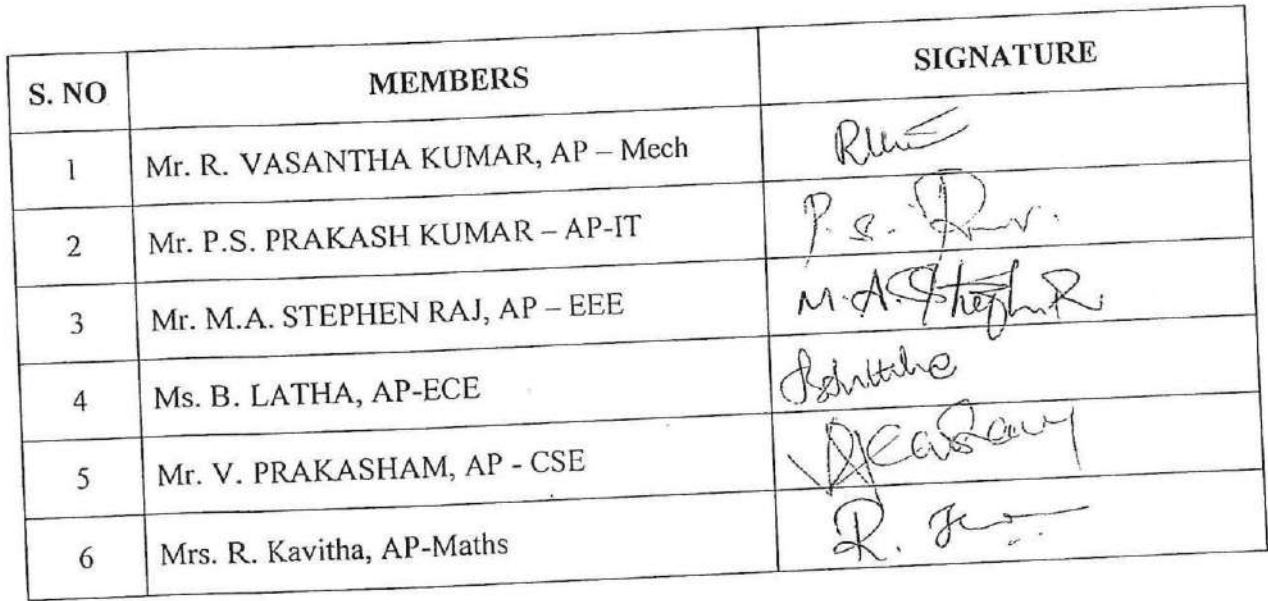 S. NO MEMBERS SIGNATURE
1 Mr. R. VASANTHA KUMAR, AP – Mech
2 Mr. P.S. PRAKASH KUMAR – AP-IT P. S.
3 Mr. M.A. STEPHEN RAJ, AP – EEE M.A. Stephen R
4 Ms. B. LATHA, AP-ECE
5 Mr. V. PRAKASHAM, AP - CSE
6 Mrs. R. Kavitha, AP-Maths R.